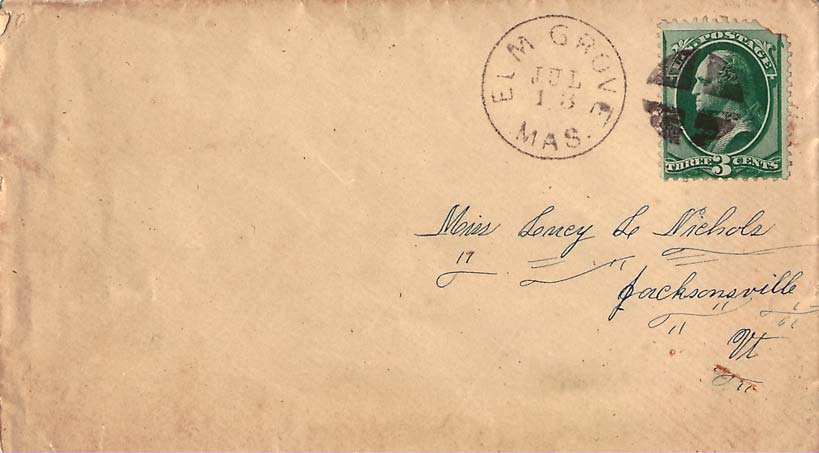 ELM GROVE
JUL
13
MAS.
U.S. POSTAGE
THREE 3 CENTS
Miss Lucy L Nichols
17 "
Jacksonsville
" "
Vt